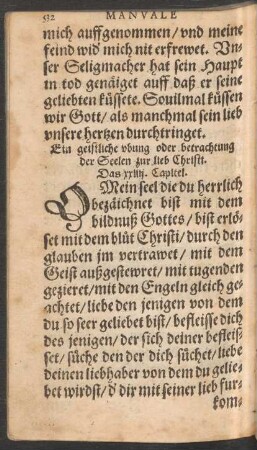 532 MANVALE
mich auffgenommen/vnd meine
feind wid mich nit erfrewet. Vn⸗
ser Seligmacher hat sein Haupt
in tod genäiget auff daß er seine
geliebten küssete. Souilmal küssen
wir Gott/als manchmal sein lieb
vnsere hertzen durchtringet.
Ein geistliche vbung oder betrachtung
der Seelen zur lieb Christi.
Das xxiiij. Capitel.
O Mein seel die du herrlich
bezäichnet bist mit dem
bildnuß Gottes/bist erlö⸗
set mit dem blůt Christi/durch den
glauben jm vertrawet/mit dem
Geist außgestewret/mit tugenden
gezieret/mit den Engeln gleich ge⸗
achtet/liebe den jenigen von dem
du so seer geliebet bist/befleisse dich
des jenigen/der sich deiner befleis⸗
set/sůche den der dich sůchet/liebe
deinen liebhaber von dem du gelie⸗
bet wirdst/d̕ dir mit seiner lieb fur⸗
kom⸗